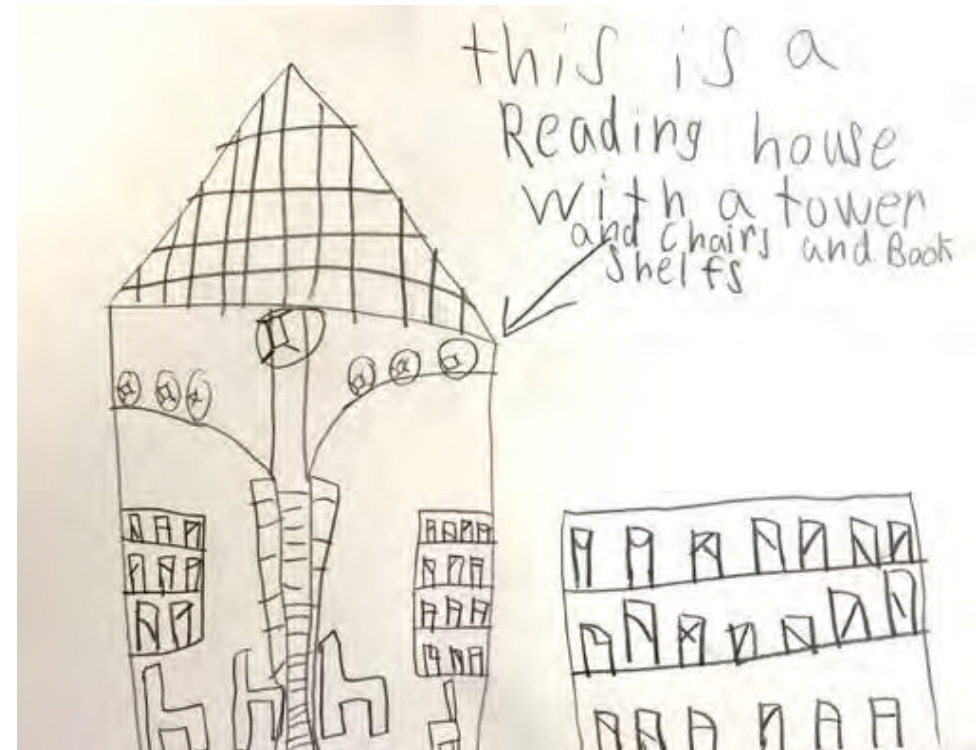 this is a
Reading house
with a tower
and Chairs and Book
Shelfs